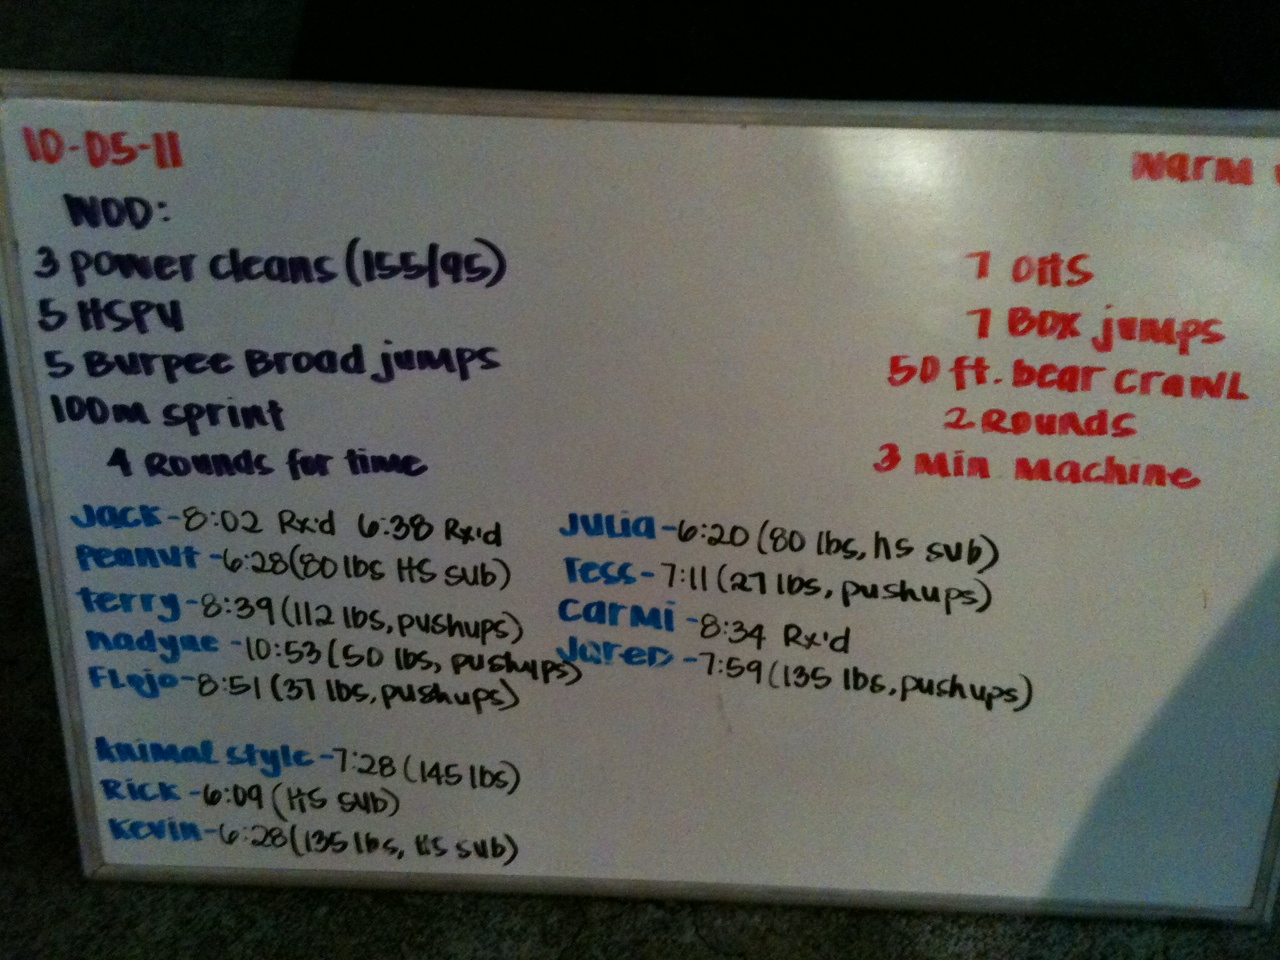 10-05-11
WOD:
3 power cleans (155/95)
5 HSPU
5 Burpee Broad jumps
100m sprint
4 Rounds for time
warm
7 OHS
7 Box jumps
50 ft. bear crawl
2 Rounds
3 Min Machine
Jack-8:02 Rx'd 6:38 Rx'd
Peanut-6:28(80 lbs HS sub)
terry-8:39(112 lbs, pushups)
nadyne-10:53(50 lbs, pushups)
Flojo-8:51(37 lbs, pushups)
Julia-6:20(80 lbs, hs sub)
Tess-7:11(27 lbs, pushups)
Carmi-8:34 Rx'd
Jared-7:59(135 lbs, pushups)
Animal style-7:28(145 lbs)
Rick-6:09(HS sub)
Kevin-6:28(135 lbs, HS sub)